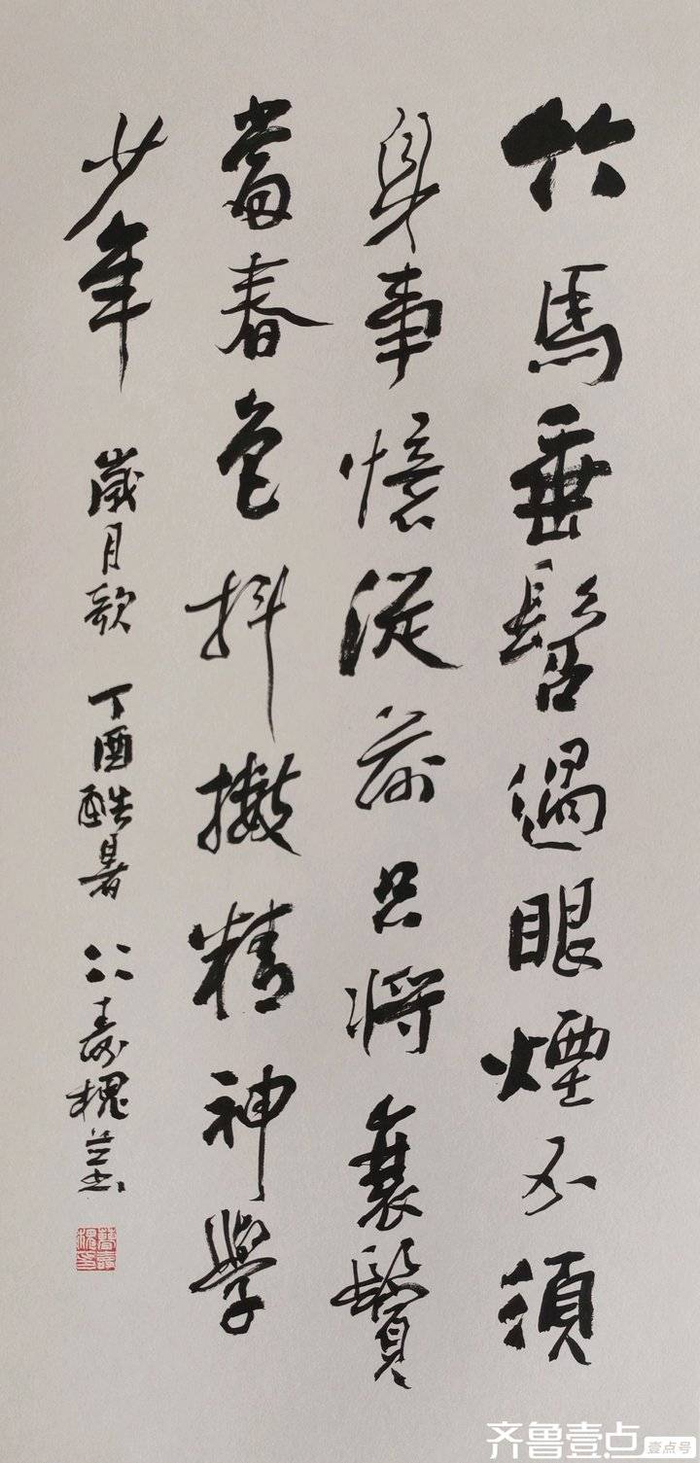 竹馬垂髫過眼煙不須
身事憶從前只將衰鬢
當春色抖擻精神學
少年 歲月歌 丁酉酷暑 壽槐
齐鲁壹点 壹点号